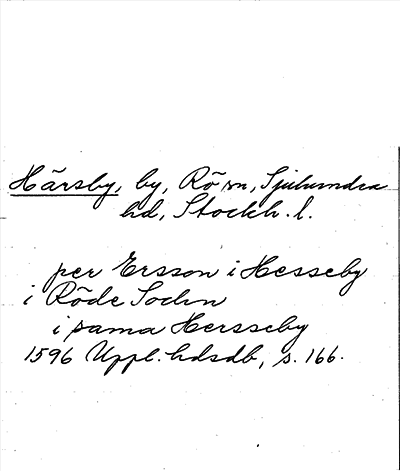 Härsby, by, Rö sn, Sjuhundra
hd, Stockh. l.
per Ersson i Hesseby
i Röde Sochn
i sama Hersseby
1596 Uppl. hdsdb, s. 166.